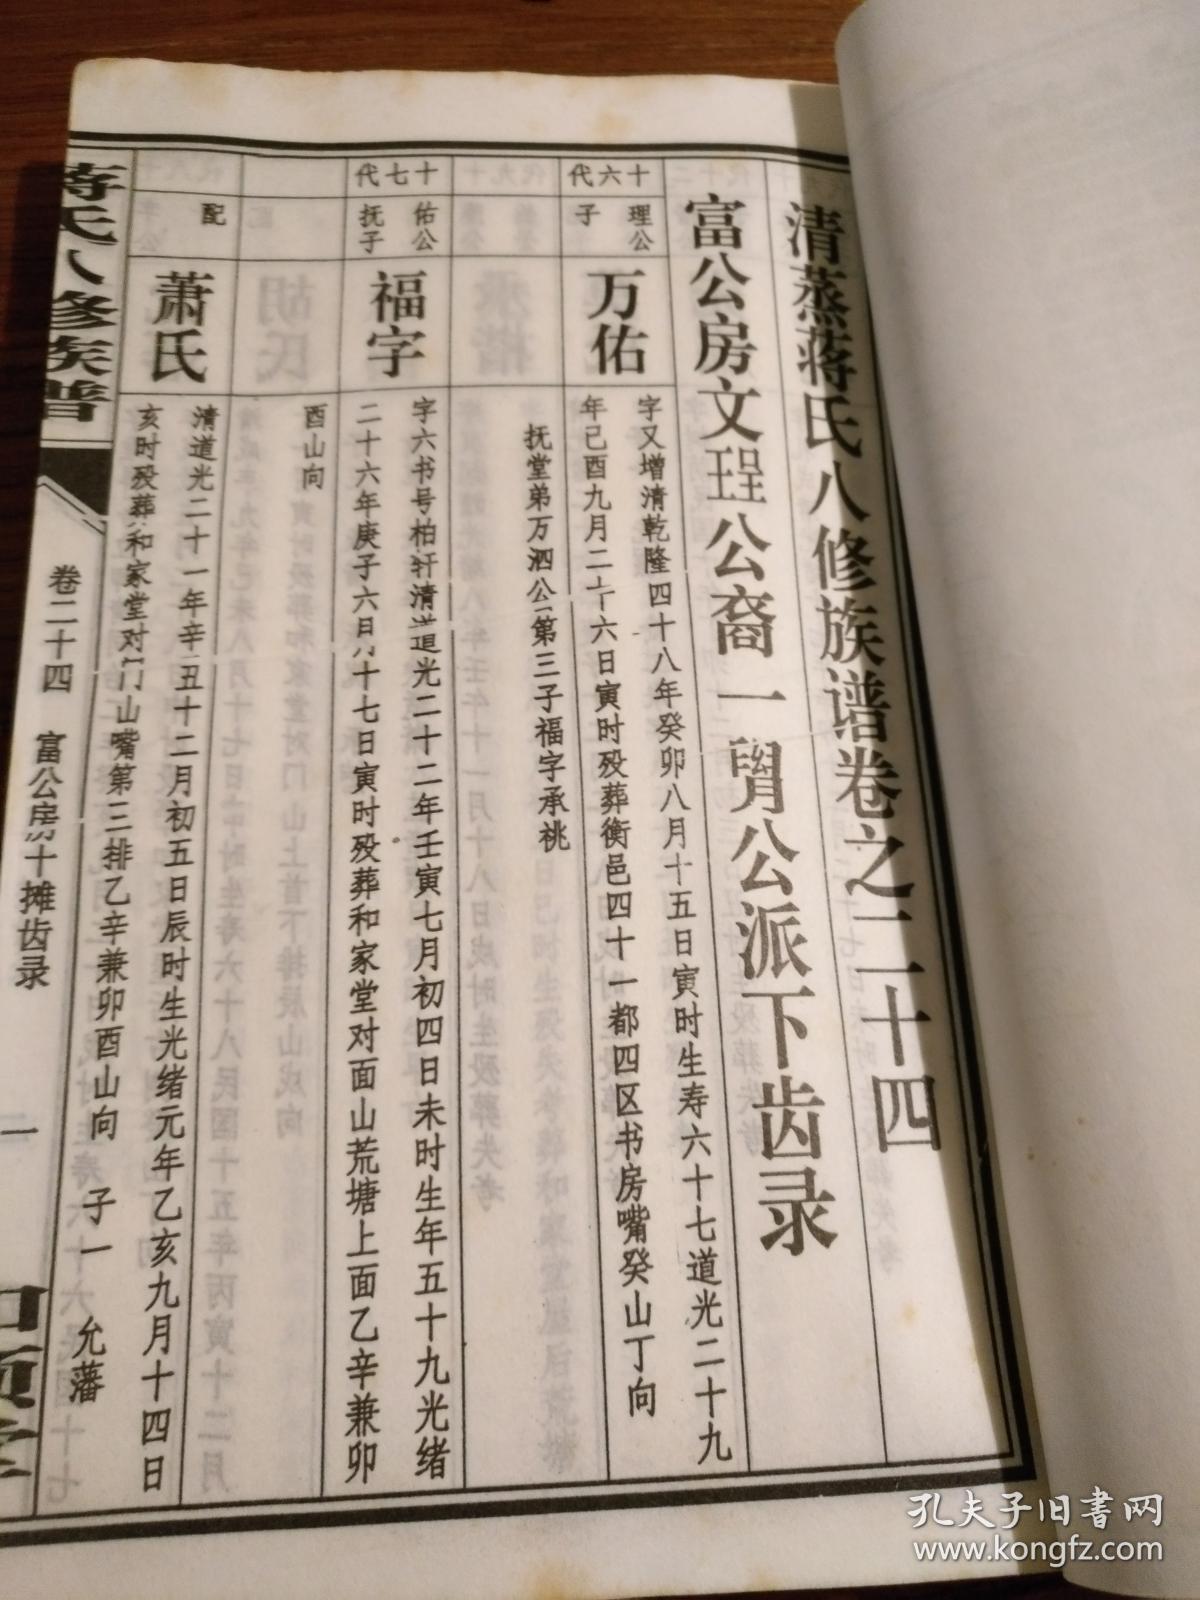 清蒸蒋氏八修族谱卷之二十四
富公房文珵公裔一鹏公派下齿录
十六代
理公
子
万佑
字又增清乾隆四十八年癸卯八月十五日寅时生寿六十七道光二十九
年己酉九月二十六日寅时殁葬衡邑四十一都四区书房嘴癸山丁向
抚堂弟万泗公第三子福字承祧
十七代
佑公
抚子
福字
字六书号柏轩清道光二十二年壬寅七月初四日未时生年五十九光绪
二十六年庚子六日八十七日寅时殁葬和家堂对面山荒塘上面乙辛兼卯
酉山向
配
萧氏
清道光二十一年辛丑十二月初五日辰时生光绪元年乙亥九月十四日
亥时殁葬和家堂对门山嘴第三排乙辛兼卯酉山向 子一 允藩
蒋氏八修族谱
卷二十四 富公房十摊齿录
一
孔夫子旧书网
www.kongfz.com